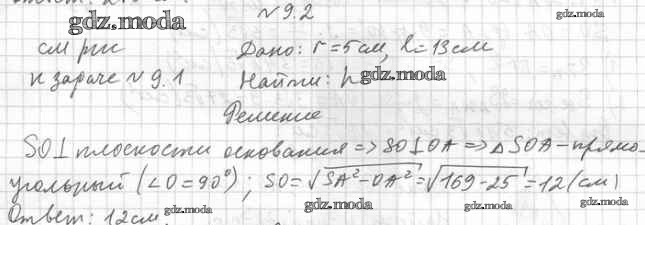 № 9.2
gdz.moda gdz.moda
см рис Дано: r = 5 см, l = 13 см
к задаче № 9.1 Найти: h gdz.moda
Решение
SO⊥плоскости основания => SO⊥OA => △ SOA - прямо-
угольный (∠O = 90°); SO = √SA² - OA² = √169 - 25 = 12 (см)
Ответ: 12 см gdz.moda gdz.moda gdz.moda gdz.moda